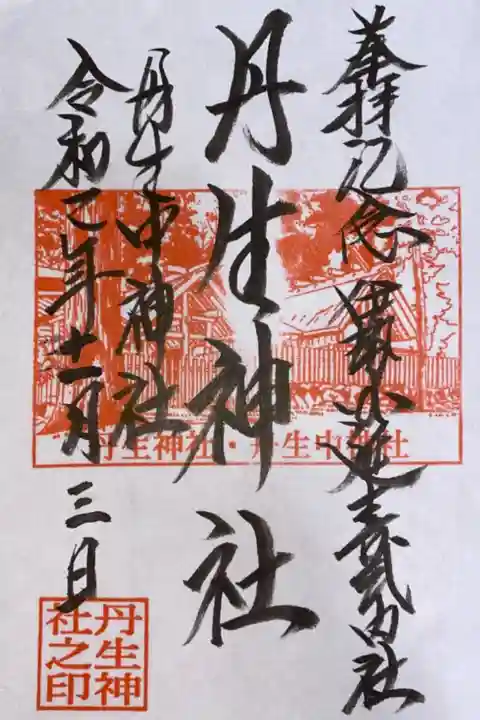 参拝記念 伊勢 延喜式内社
丹生神社
丹生中神社
令和元年十一月三日
丹生神社・丹生中神社
丹生神
社之印